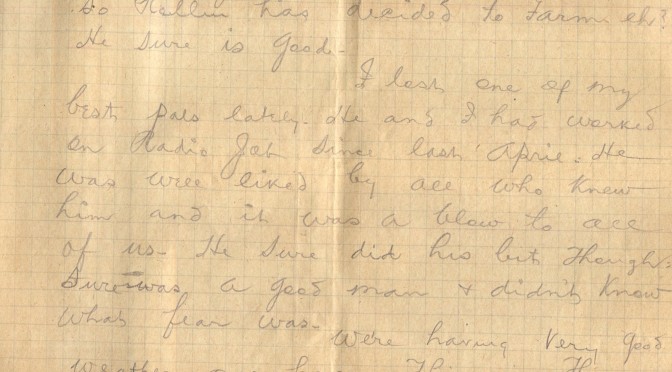 So Rollin has decided to farm eh?
He sure is good-
I lost one of my
best pals lately. He and I had worked
on Radio Job since last April. He
was well liked by all who knew
him and it was a blow to all
of us- He sure did his bit though.
Sure was a good man & didn't know
what fear was-
We're having very good
weather